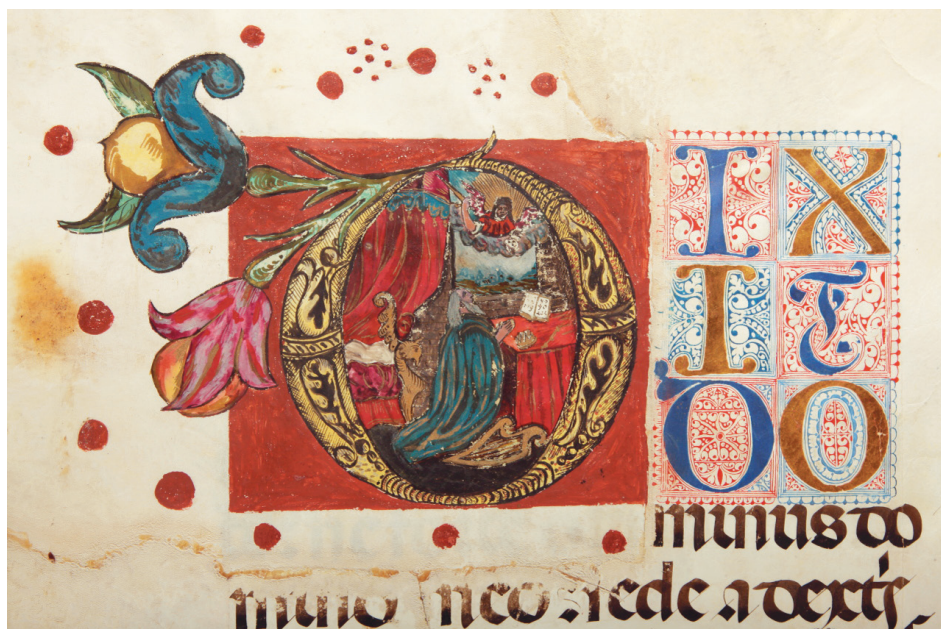 DIX
IT
DO
minus do
mino meo sede a dextꝭ